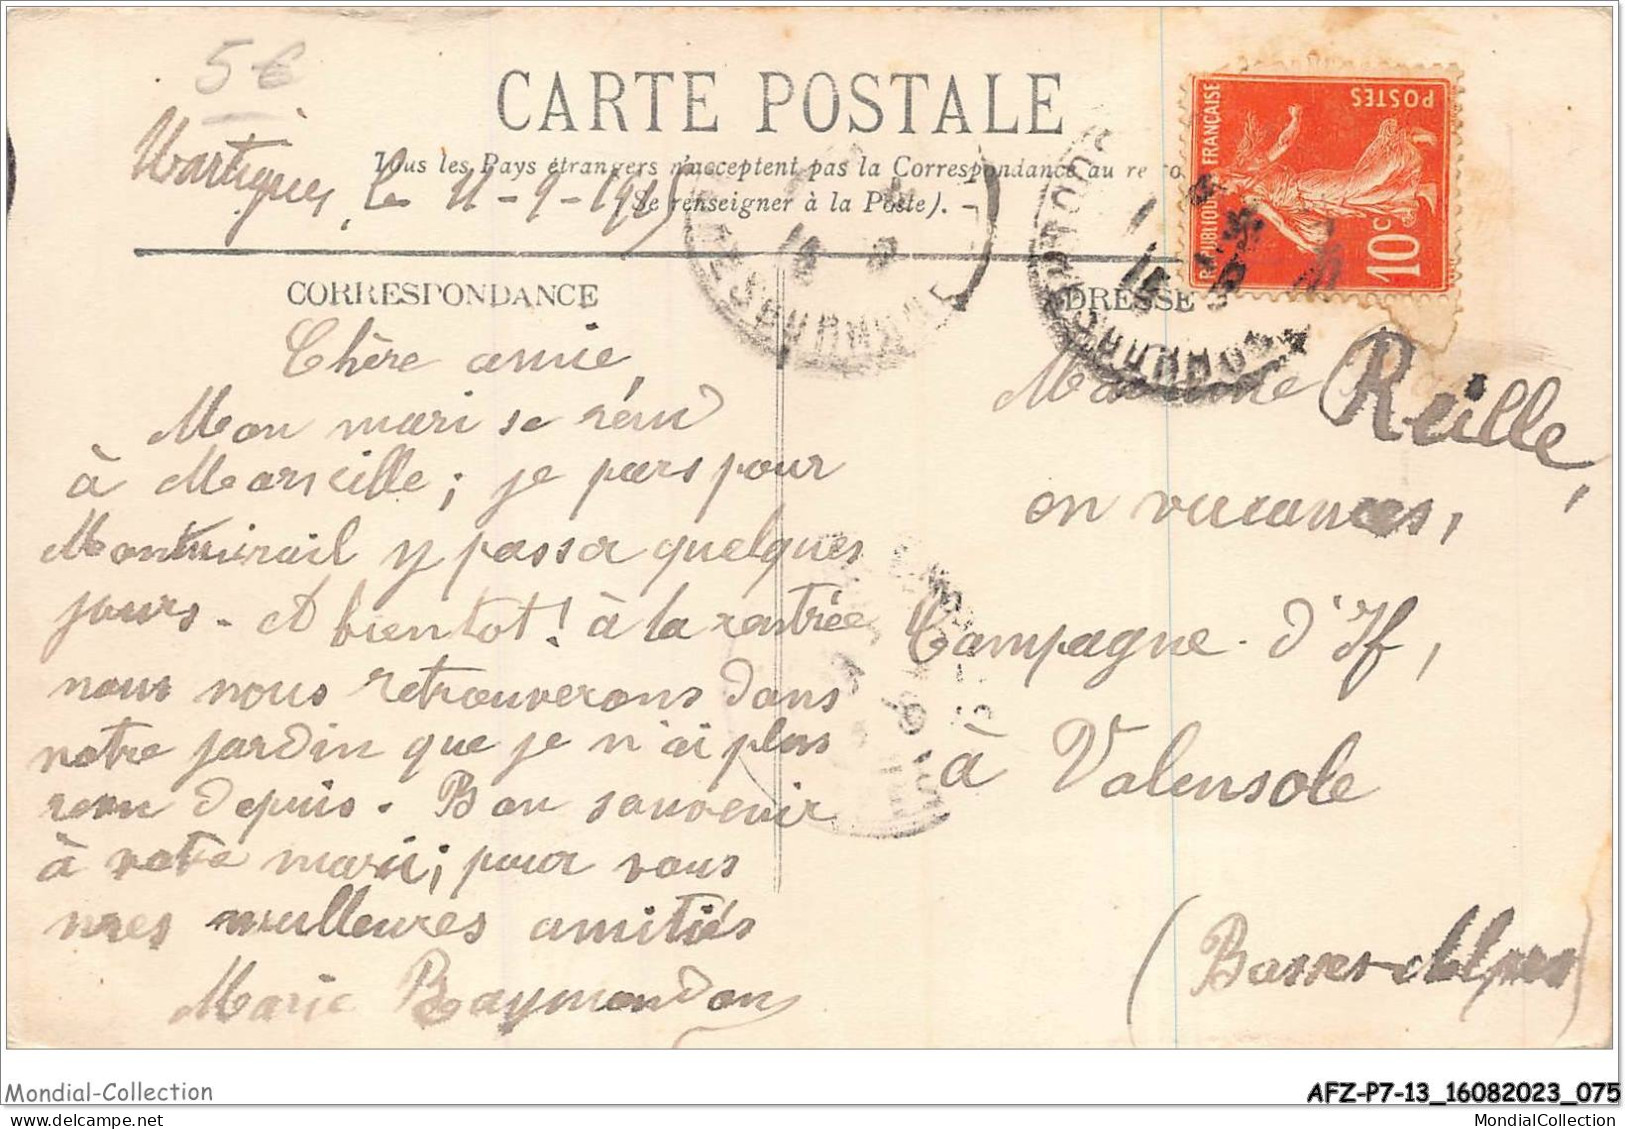 5€
CARTE POSTALE
Tous les Pays étrangers n'acceptent pas la Correspondance au re
Se renseigner à la Poste).
Martigues, le 11-9-19
CORRESPONDANCE
Chère amie,
Mon mari se rend
à Marseille; je pars pour
Montmirail y passer quelques
jours. A bientot! à la rentrée
nous nous retrouverons dans
notre jardin que je n'ai plus
revu depuis. Bon souvenir
à votre mari; pour vous
mes meilleures amitiés
Marie Raymondon
DRESSE
POSTES
REPUBLIQUE FRANÇAISE
10c
Madame Reille,
en vacances,
Campagne d'If,
à Valensole
(Basses-Alpes)
Mondial-Collection
AFZ-P7-13_16082023_075
Mondial-Collection on delcampe.net
MondialCollection